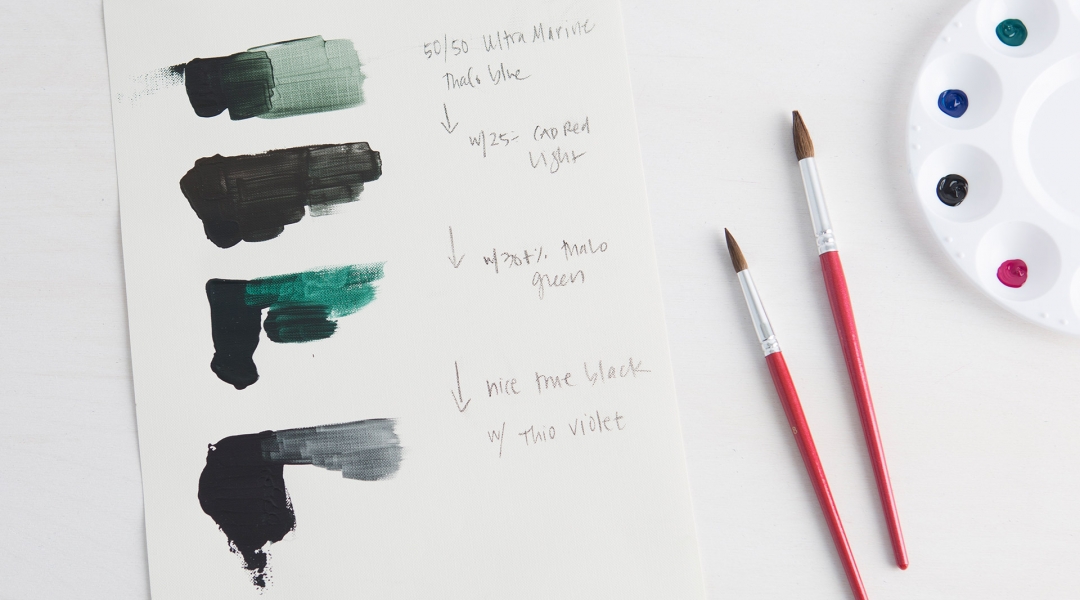 50/50 UltraMarine
Thalo blue
↓
w/25% CAD Red
Light
↓
w/30+% Thalo
green
↓
nice true black
w/ Thio violet